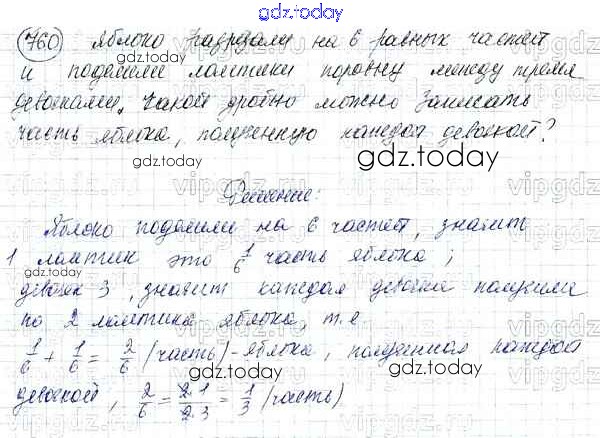 gdz.today
760 Яблоко разрезали на 6 равных частей
и поделили ломтики поровну между тремя
gdz.today
девочками. Какой дробью можно записать
часть яблока, полученную каждой девочкой?
gdz.today
gdz.today
Решение:
Яблоко поделили на 6 частей, значит
1 ломтик это 1/6 часть яблока;
gdz.today
девочек 3, значит каждая девочка получила
по 2 ломтика яблока, т.е.
gdz.today
1/6 + 1/6 = 2/6 (часть) - яблока, полученная каждой
девочкой, 2/6 = 2 1/2 3 = 1/3 (часть)
gdz.today